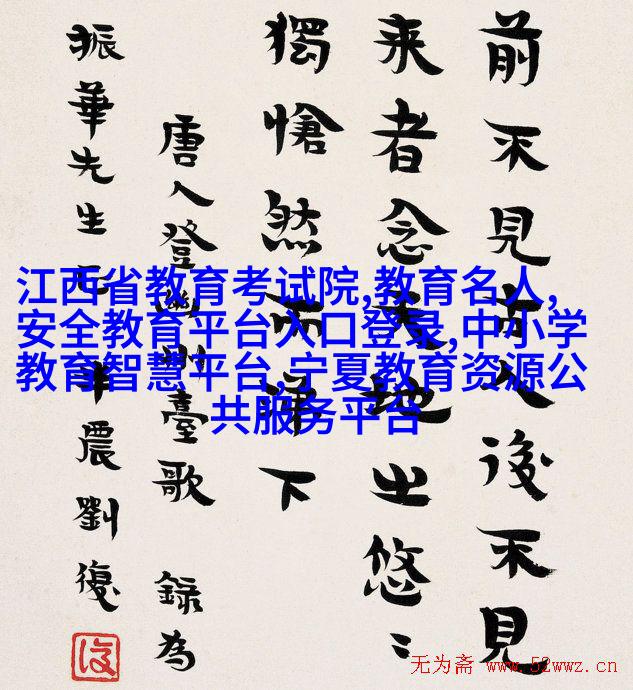 前不見古人後不見
来者念天地之悠〻
獨愴然而涕下
唐人登幽州臺歌 錄為
振華先生正 半農劉復
復
江西省教育考试院,教育名人,
安全教育平台入口登录,中小学
教育智慧平台,宁夏教育资源公
共服务平台
无为斋 www.52wwz.cn